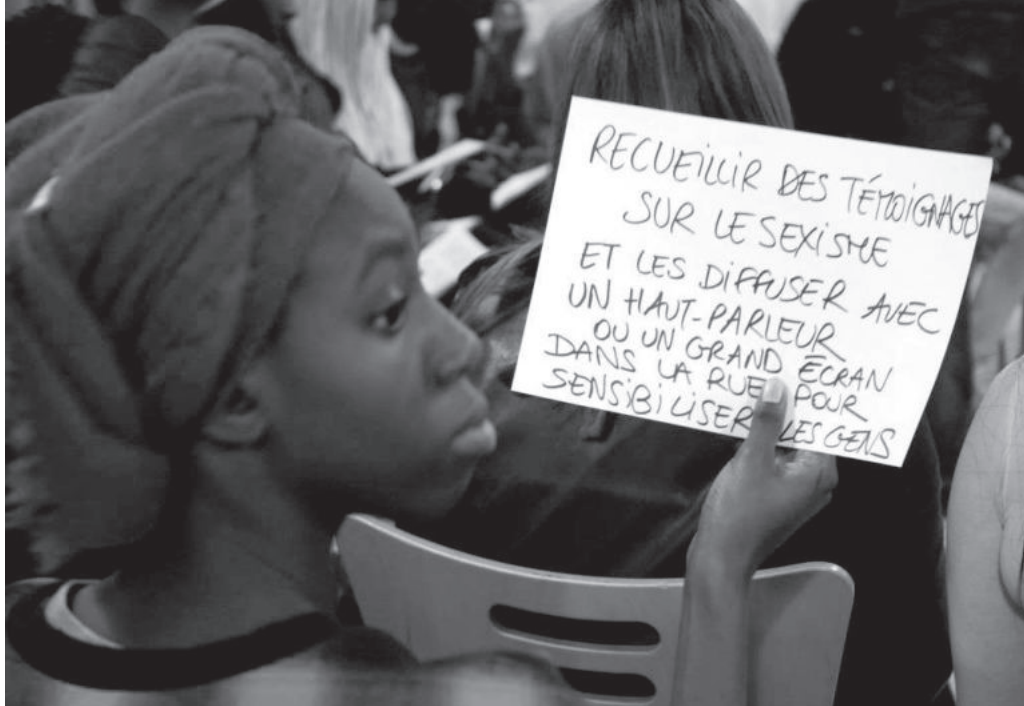 RECUEILLIR DES TÉMOIGNAGES
SUR LE SEXISME
ET LES DIFFUSER AVEC
UN HAUT-PARLEUR
OU UN GRAND ÉCRAN
DANS LA RUE POUR
SENSIBILISER LES GENS